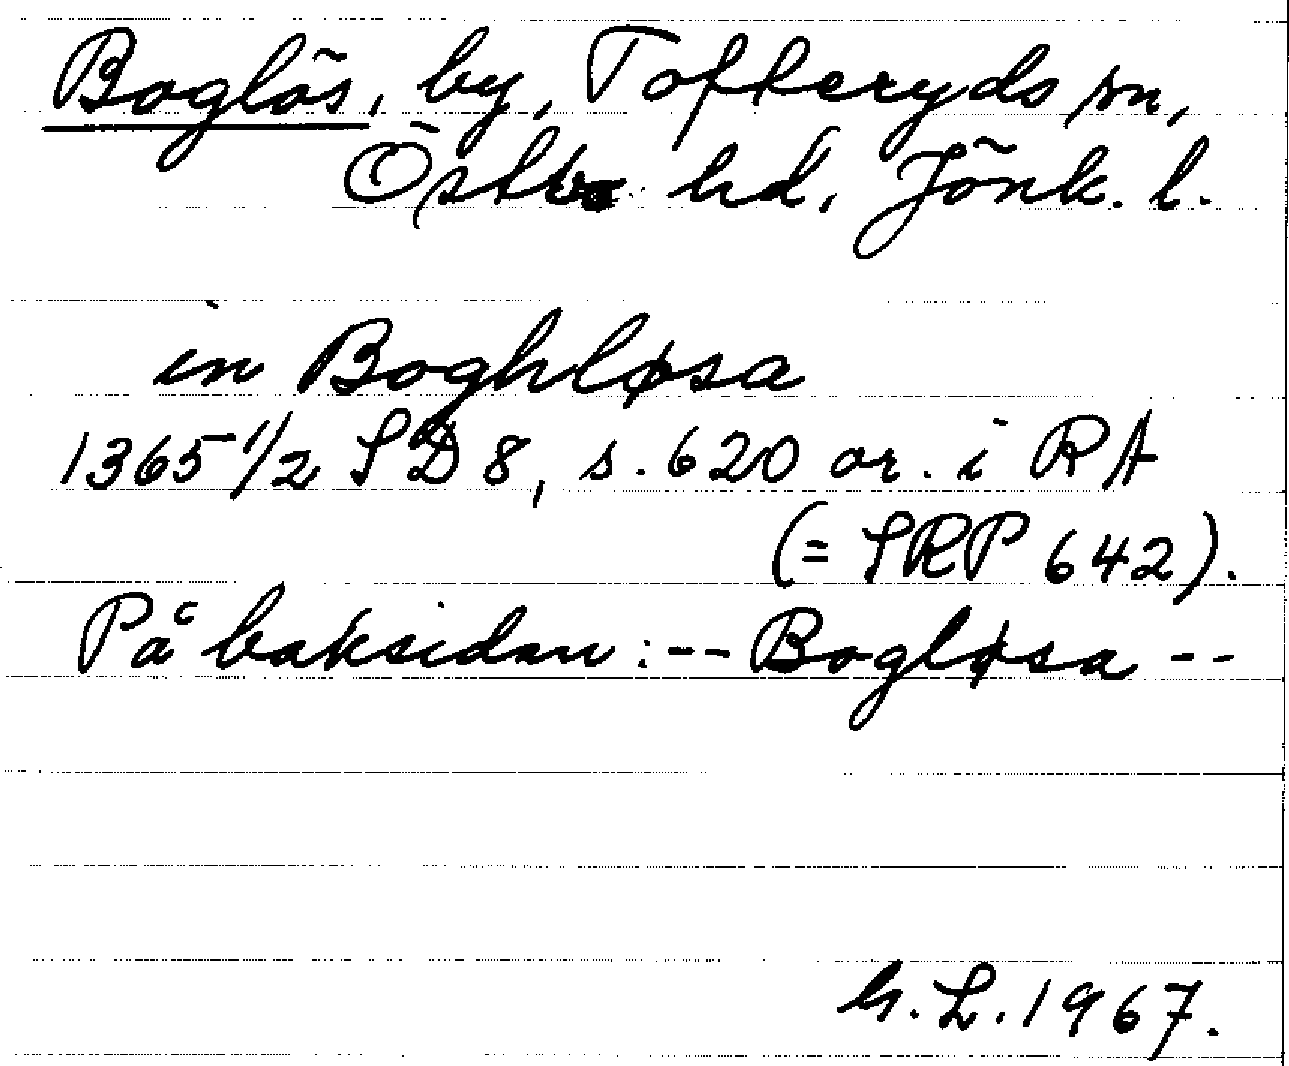 Boglös, by, Tofteryds sn,
Östbo hd, Jönk. l.
in Boghløsa
1365 1/2 SD 8, s. 620 or. i RA
(= SRP 642).
På baksidan: -- Bogløsa --
G. L. 1967.